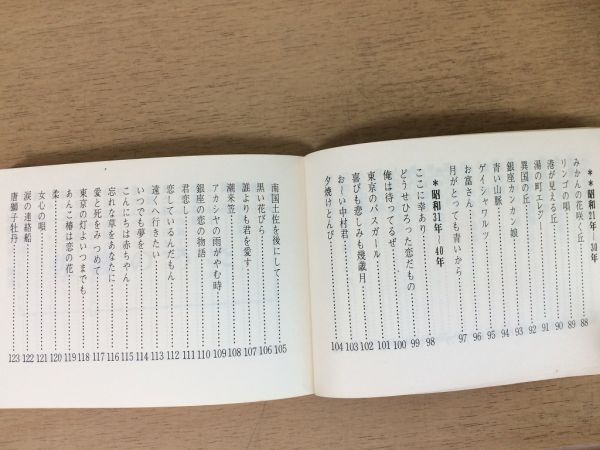 **昭和21年—30年
みかんの花咲く丘……88
リンゴの唄……89
港が見える丘……90
湯の町エレジー……91
異国の丘……92
銀座カンカン娘……93
青い山脈……94
ゲイシャワルツ……95
お富さん……96
月がとっても青いから……97
**昭和31年—40年
ここに幸あり……98
どうせひろった恋だもの……99
俺は待ってるぜ……100
東京のバスガール……101
喜びも悲しみも幾歳月……102
おーい中村君……103
夕焼けとんび……104
南国土佐を後にして……105
黒い花びら……106
誰よりも君を愛す……107
潮来笠……108
アカシヤの雨がやむ時……109
銀座の恋の物語……110
君恋し……111
恋しているんだもん……112
遠くへ行きたい……113
いつでも夢を……114
こんにちは赤ちゃん……115
忘れな草をあなたに……116
愛と死をみつめて……117
東京の灯よいつまでも……118
あんこ椿は恋の花……119
柔……120
女心の唄……121
涙の連絡船……122
唐獅子牡丹……123